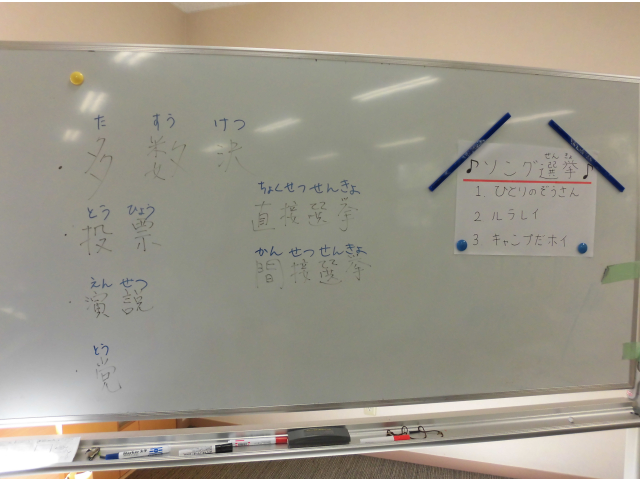 た すう けつ
多数決
とう ひょう
投票
えん せつ
演説
とう
党
ちょくせつせんきょ
直接選挙
かんせつせんきょ
間接選挙
せんきょ
♪ソング選挙♪
1. ひとりのぞうさん
2 ルラレイ
3 キャンプだホイ